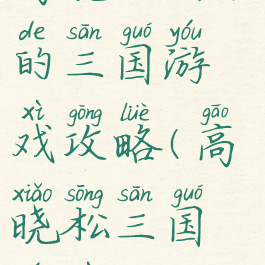 de sān guó yóu
的三国游
xì gōng lüè gāo
戏攻略(高
xiǎo sōng sān guó
晓松三国